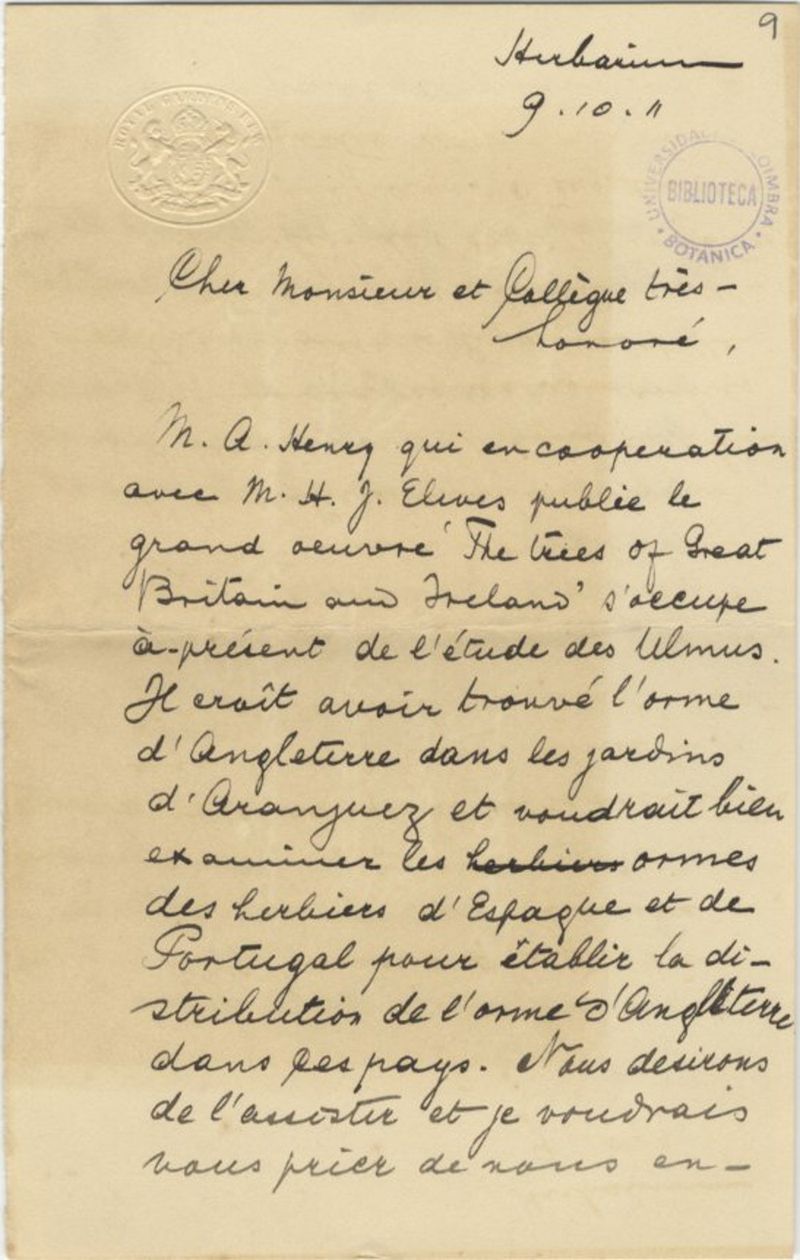 9
Herbarium
9.10.11
ROYAL GARDENS KEW
UNIVERSIDADE COIMBRA
BIBLIOTECA
BOTANICA
Cher Monsieur et Collègue très-
honoré,
M. A. Henry qui en cooperation
avec M. H. J. Elwes publie le
grand oeuvre 'The trees of Great
Britain and Ireland' s'occupe
à-présent de l'étude des Ulmus.
Il croît avoir trouvé l'orme
d'Angleterre dans les jardins
d'Aranjuez et voudrait bien
examiner les herbiers ormes
des herbiers d'Espagne et de
Portugal pour établir la di-
stribution de l'orme d'Angleterre
dans ces pays. Nous desirons
de l'assister et je voudrais
vous prier de nous en-